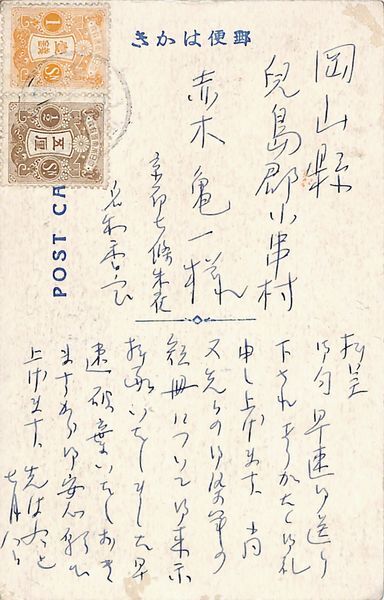 郵便はかき
POST CA
岡山縣
兒島郡小串村
赤木亀一様
京都七條
拝呈
御句早速御送り
下されありがたく御礼
申し上げます 尚
又先日の御染筆の
短冊について御来示
拝承いたしました早
速破棄いたしおき
ますから御安心願
上げます 先は右迄
七月八日